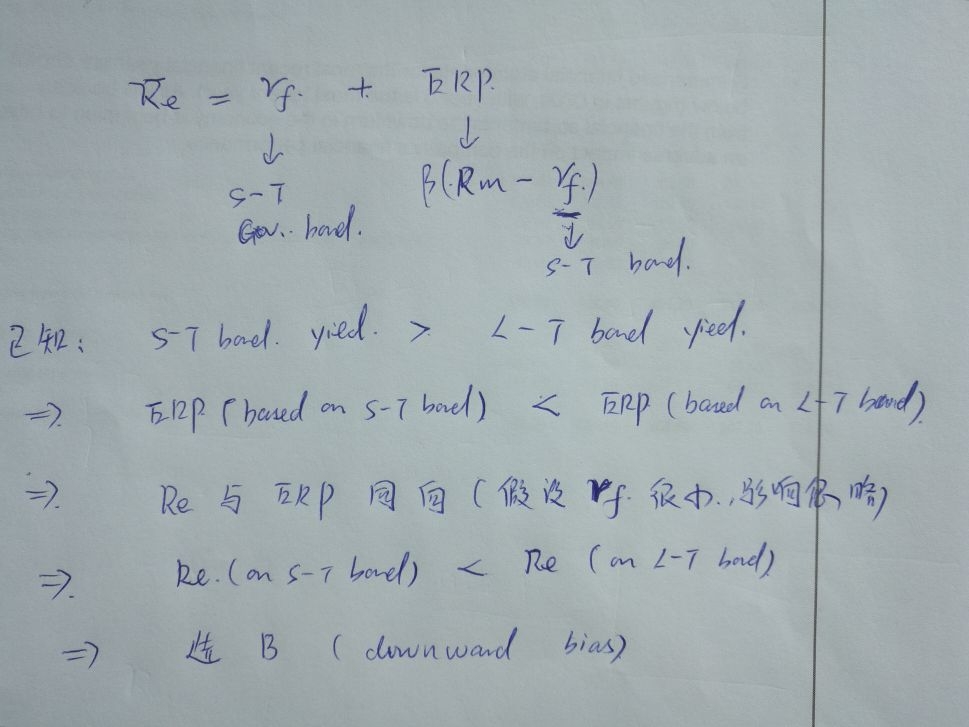 Re = rf. + ERP.
↓ ↓
S-T β(Rm - rf.)
Gov. bond. ↓
S-T bond.
已知: S-T bond. yied. > L-T bond yieed.
⇒ ERP (based on S-T bond) < ERP (based on L-T bond)
⇒ Re 与 ERP 同向 (假设 rf. 很小, 影响忽略)
⇒ Re. (on S-T bond) < Re (on L-T bond)
⇒ 选 B (downward bias)